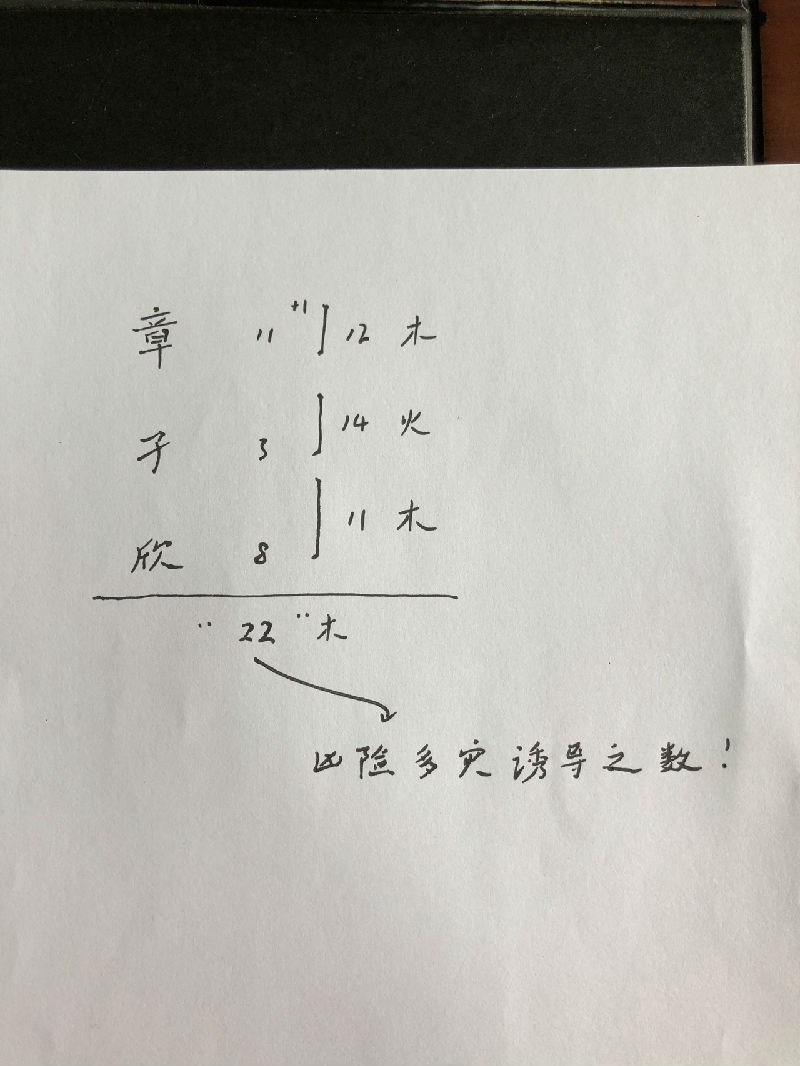 章 11 +1 ] 12 木
子 3 ] 14 火
欣 8 ] 11 木
" 22 " 木
凶险多灾诱导之数！